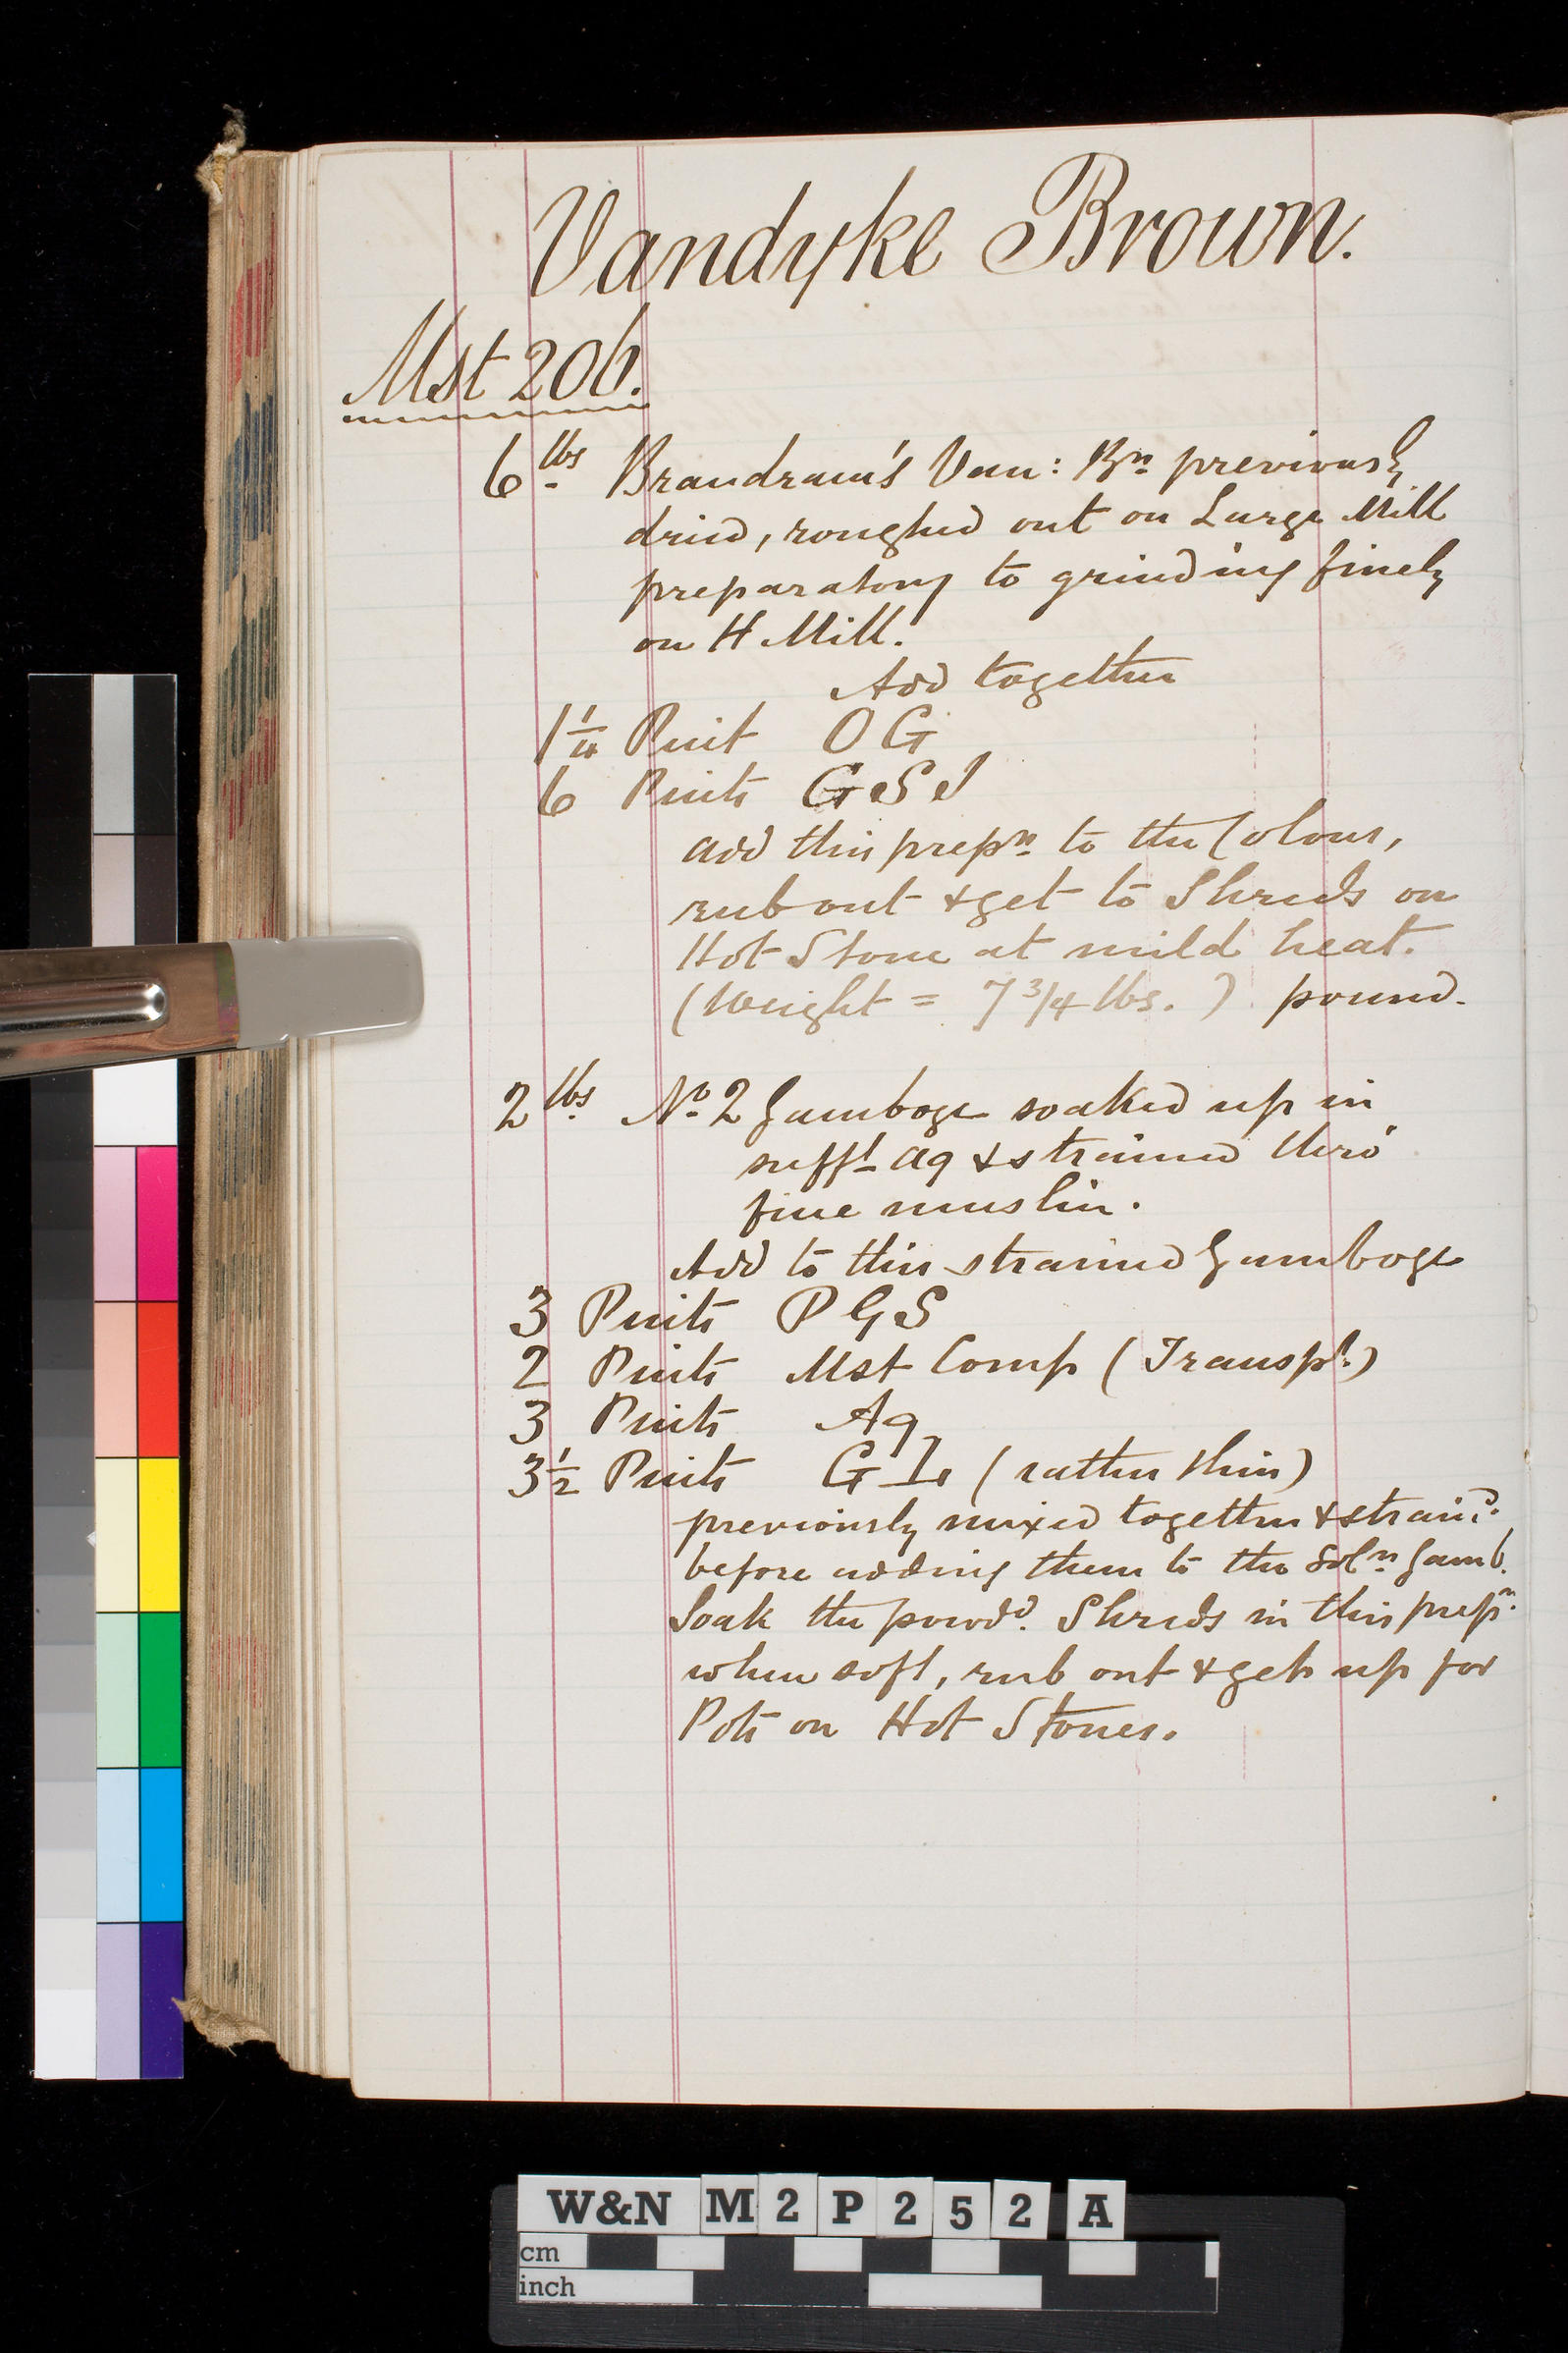 Vandyke Brown.
Mst 206.
6 lbs Brandram's Van: Bn previously
dried, roughed out on Large Mill
preparatory to grinding finely
on H Mill.
Add together
1 1/4 Pint O G
6 Pints G S J
add this prepn to the Colour,
rub out & get to Shreds on
Hot Stone at mild heat.
(Weight = 7 3/4 lbs.) pound.
2 lbs No 2 Gamboge soaked up in
sufft aq & strained thro'
fine muslin.
Add to this strained Gamboge
3 Pints P G S
2 Pints Mst Comp (Transpt.)
3 Pints Aq
3 1/2 Pints G L (rather thin)
previously mixed together & straind.
before adding them to the Soln Gamb.
Soak the powdd. Shreds in this prepn.
when soft, rub out & get up for
Pots on Hot Stones.
W&N M 2 P 2 5 2 A
cm
inch